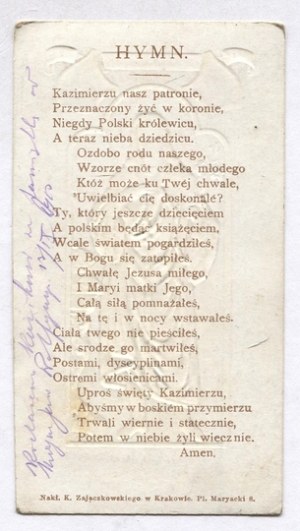 HYMN.
Kazimierzu nasz patronie,
Przeznaczony żyć w koronie,
Niegdy Polski królewicu,
A teraz nieba dziedzicu.
Ozdobo rodu naszego,
Wzorze cnót człeka młodego
Któż może ku Twéj chwale,
Uwielbiać cię doskonale?
Ty, który jeszcze dziecięciem
A polskim będąc książęciem,
Wcale światem pogardziłeś,
A w Bogu się zatopiłeś.
Chwałę Jezusa miłego,
I Maryi matki Jego,
Całą siłą pomnażałeś,
Na tę i w nocy wstawałeś.
Ciała twego nie pieściłeś,
Ale srodze go martwiłeś,
Postami, dyscyplinami,
Ostremi włosienicami.
Uproś święty Kazimierzu,
Abyśmy w boskiém przymierzu
Trwali wiernie i statecznie,
Potem w niebie żyli wiecznie.
Amen.
Nakł. K. Zajączkowskiego w Krakowie. Pl. Maryacki 8.